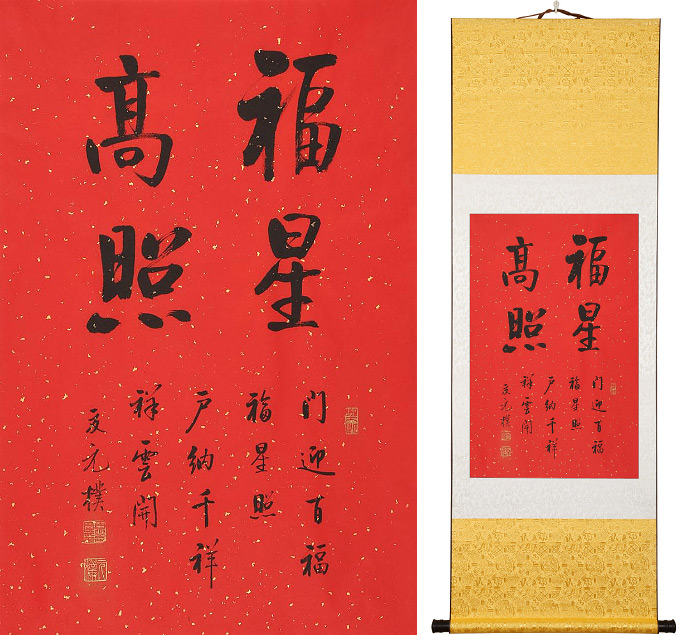 福星
髙照
门迎百福
福星照
户纳千祥
祥雲開
元樸
福星
髙照
门迎百福
福星照
户纳千祥
祥雲開
元樸